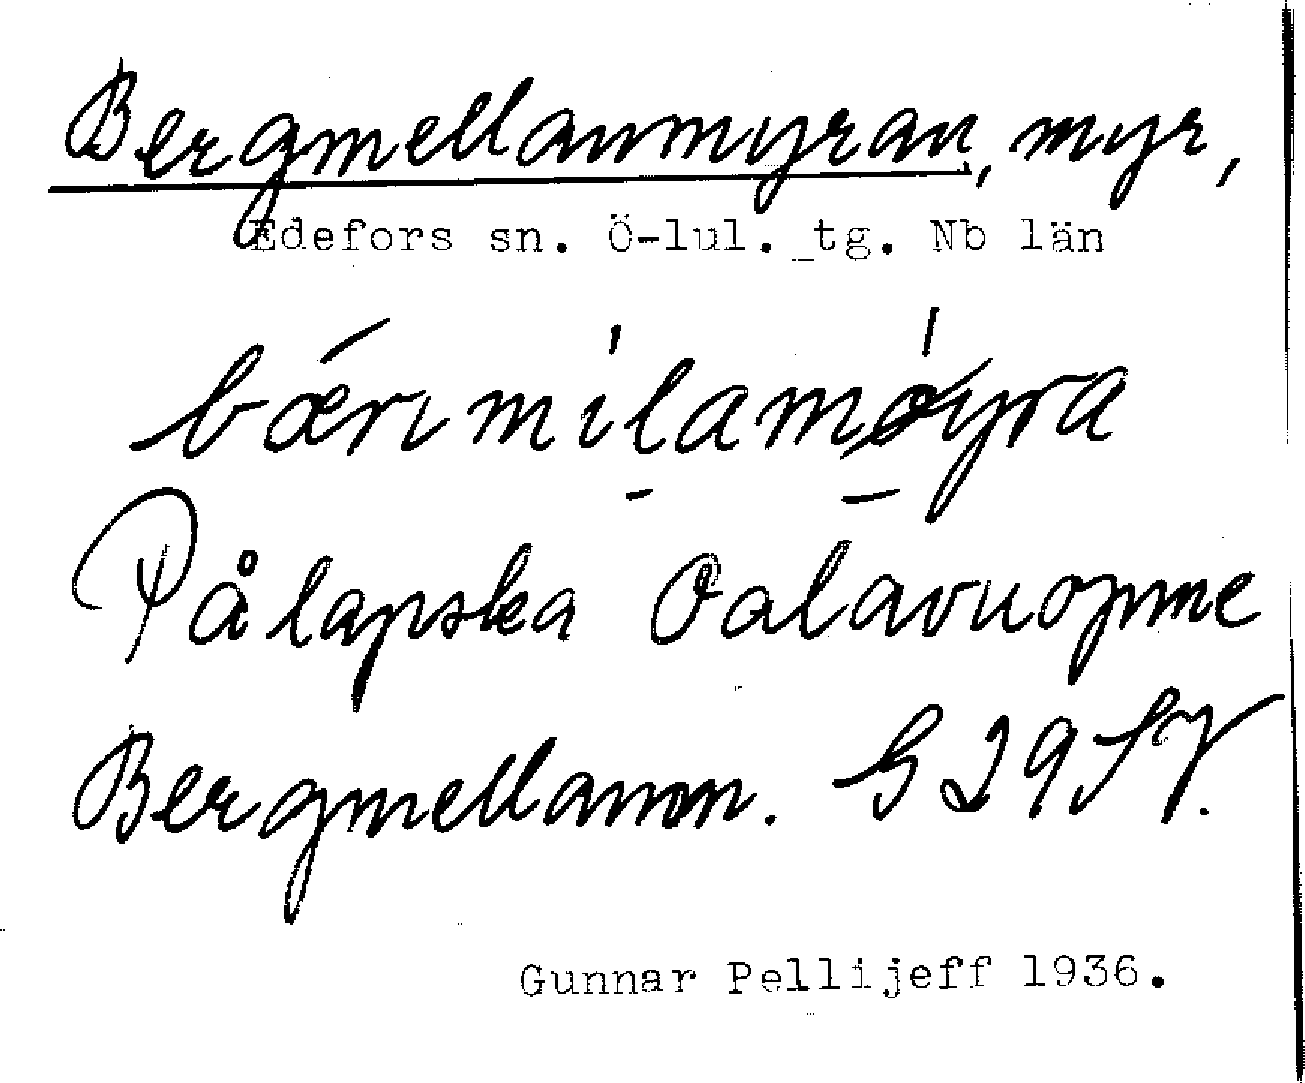 Bergmellanmyran, myr,
Edefors sn. Ö-lul. tg. Nb län
På lapska Oalavuopme
Bergmellanm. G 29 SV.
Gunnar Pellijeff 1936.